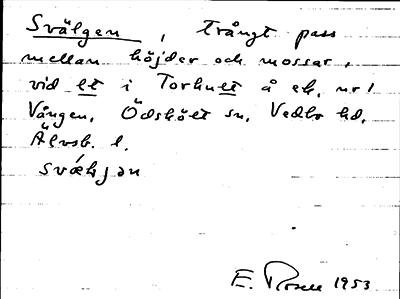 Svälgen, trångt pass
mellan höjder och mossar,
vid tt i Torhutt å ek. nr 1
Vången, Ödskölt sn, Vedbo hd,
Älvsb. l.
E. Rosell 1953